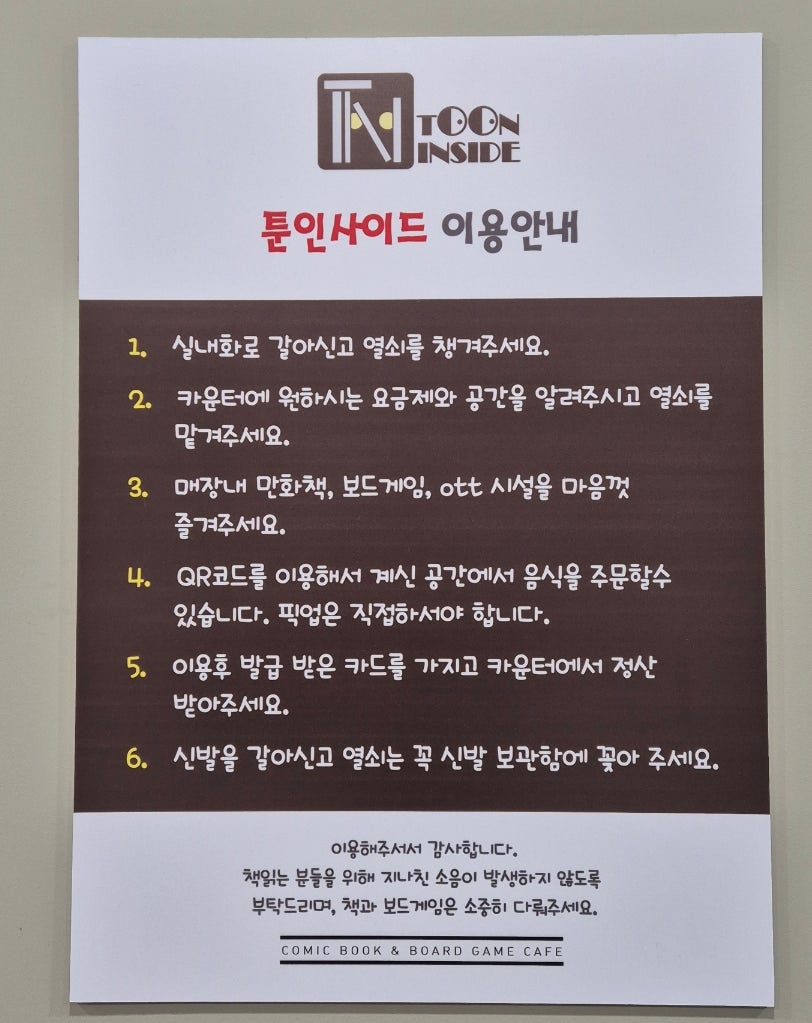 TN TOON
INSIDE
툰인사이드 이용안내
1. 실내화로 갈아신고 열쇠를 챙겨주세요.
2. 카운터에 원하시는 요금제와 공간을 알려주시고 열쇠를
맡겨주세요.
3. 매장내 만화책, 보드게임, ott 시설을 마음껏
즐겨주세요.
4. QR코드를 이용해서 계신 공간에서 음식을 주문할수
있습니다. 픽업은 직접하셔야 합니다.
5. 이용후 발급 받은 카드를 가지고 카운터에서 정산
받아주세요.
6. 신발을 갈아신고 열쇠는 꼭 신발 보관함에 꽂아 주세요.
이용해주셔서 감사합니다.
책읽는 분들을 위해 지나친 소음이 발생하지 않도록
부탁드리며, 책과 보드게임은 소중히 다뤄주세요.
COMIC BOOK & BOARD GAME CAFE